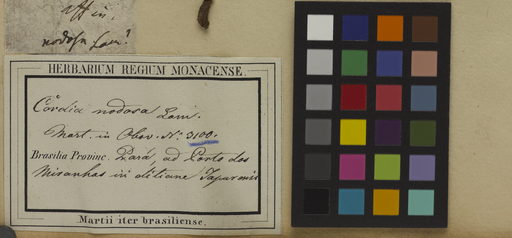 aff in.
nodosa Lam?
HERBARIUM REGIUM MONACENSE.
Cordia nodosa Lam.
Mart. in Obs. N. 3100.
Brasilia Provinc. Pará, ad Porto dos
Miranhas in ditione Japurensi
Martii iter brasiliense.